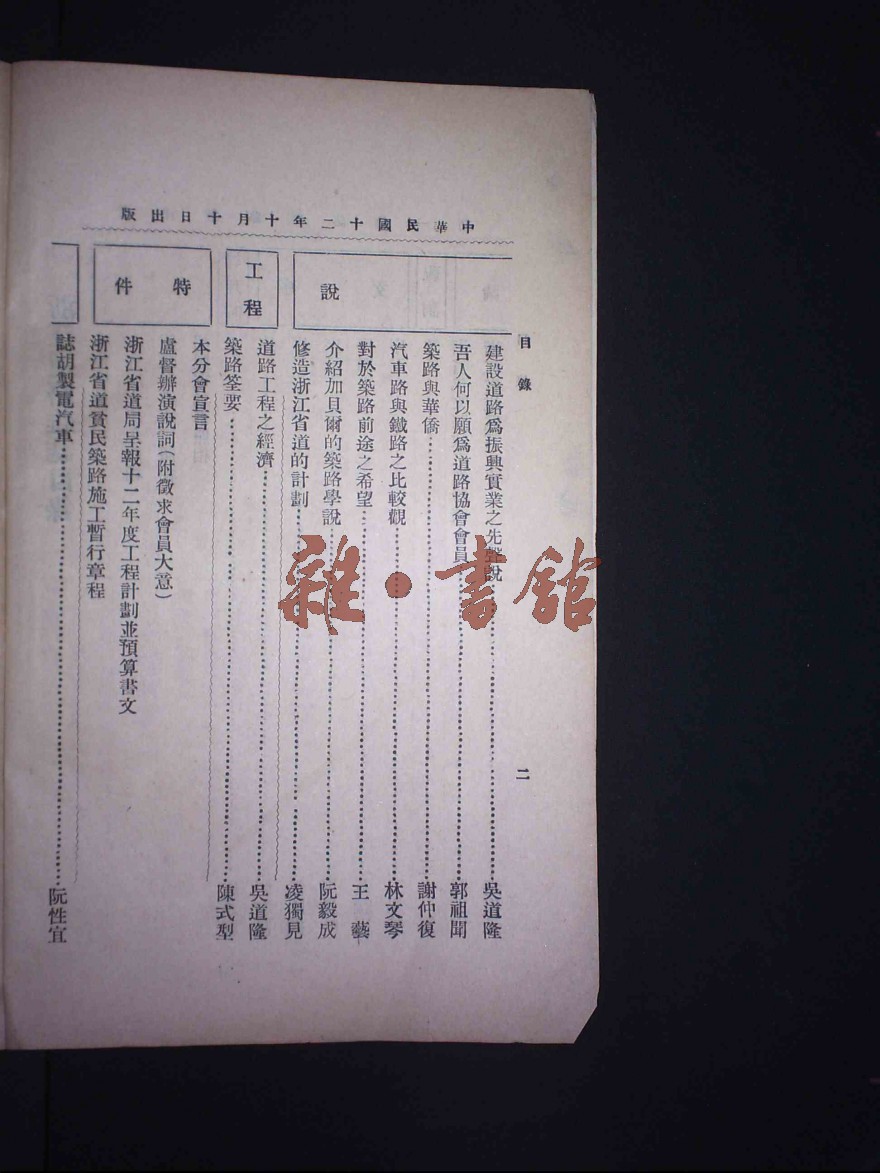 中華民國十二年十月十日出版
目錄
二
說
建設道路爲振興實業之先聲說 吳道隆
吾人何以願爲道路協會會員 郭祖聞
築路與華僑 謝仲復
汽車路與鐵路之比較觀 林文琴
對於築路前途之希望 王藝
介紹加貝爾的築路學說 阮毅成
修造浙江省道的計劃 凌獨見
工程
道路工程之經濟 吳道隆
築路筌要 陳式型
特件
本分會宣言
盧督辦演說詞(附徵求會員大意)
浙江省道局呈報十二年度工程計劃並預算書文
浙江省道貧民築路施工暫行章程
誌胡製電汽車 阮性宜
雜·書館